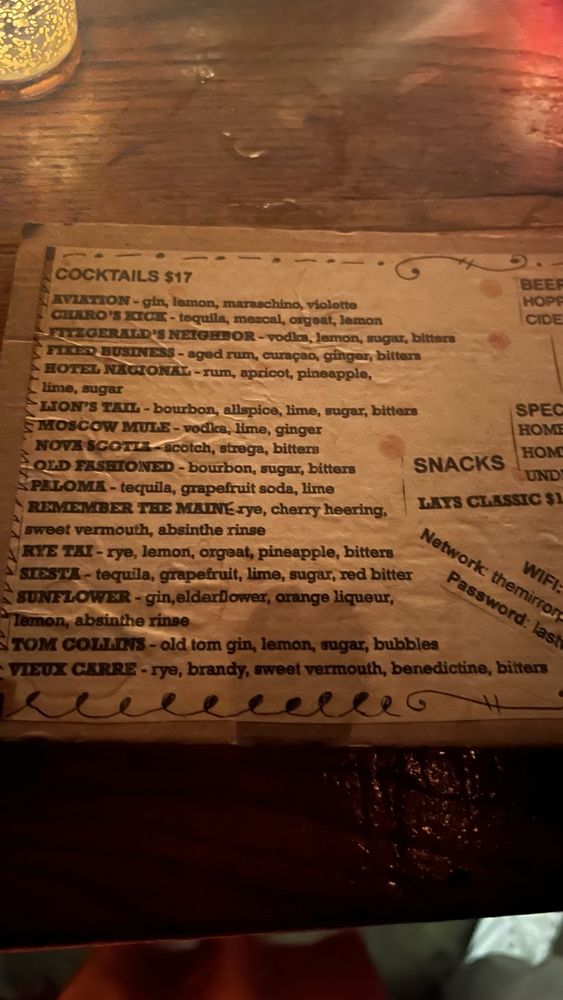 COCKTAILS $17
AVIATION - gin, lemon, maraschino, violette
CHARO'S KICK - tequila, mezcal, orgeat, lemon
FITZGERALD'S NEIGHBOR - vodka, lemon, sugar, bitters
FIXED BUSINESS - aged rum, curaçao, ginger, bitters
HOTEL NACIONAL - rum, apricot, pineapple,
lime, sugar
LION'S TAIL - bourbon, allspice, lime, sugar, bitters
MOSCOW MULE - vodka, lime, ginger
NOVA SCOTIA - scotch, strega, bitters
OLD FASHIONED - bourbon, sugar, bitters
PALOMA - tequila, grapefruit soda, lime
REMEMBER THE MAINE-rye, cherry heering,
sweet vermouth, absinthe rinse
RYE TAI - rye, lemon, orgeat, pineapple, bitters
SIESTA - tequila, grapefruit, lime, sugar, red bitter
SUNFLOWER - gin,elderflower, orange liqueur,
lemon, absinthe rinse
TOM COLLINS - old tom gin, lemon, sugar, bubbles
VIEUX CARRE - rye, brandy, sweet vermouth, benedictine, bitters
BEER
HOPP
CIDE
SPEC
HOME
HOM
UND
SNACKS
LAYS CLASSIC $1
WIFI:
Network: themirrorp
Password: last